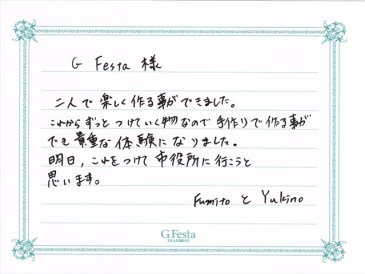 G Festa 様
二人で楽しく作る事ができました。
これからずっとつけていく物なので手作りで作る事が
でき貴重な体験になりました。
明日、これをつけて市役所に行こうと
思います。
Fumito と Yukino
G.Festa
DIAMOND